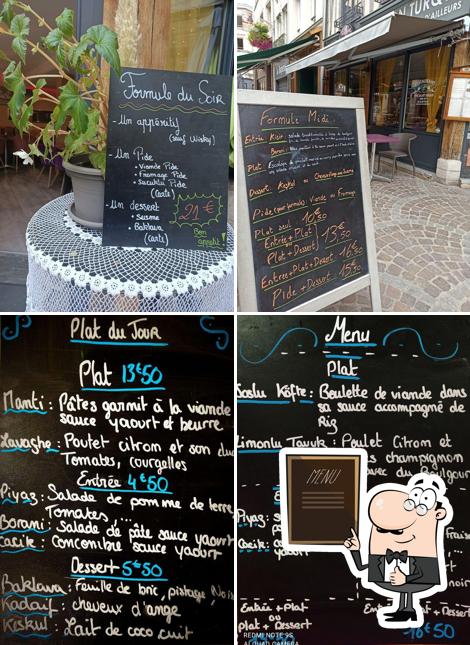 Formule du Soir
- Un apéritif
(sauf Wisky)
- Un Pide
• Viande Pide
• Fromage Pide
• Sucuklu Pide
(carte)
- Un dessert
• Susme
• Baklava
(carte)
21 €
Bon
appetit !
TURQ
D'AILLEURS
Formule Midi
Entrée
Plat
Dessert
Pide (pour formule) Viande ou Fromage
Plat seul 10€50
Entrée + Plat
Plat + Dessert 13€50
Entrée + Plat + Dessert 16€50
Pide + Dessert 15€50
Plat du Jour
Plat 13€50
Manti : Pâtes garnit à la viande
sauce yaourt et beurre
Lavashe : Poulet citron et son
Tomates, courgelles
Entrée 4€50
Piyaz : Salade de pomme de terre
Tomates, ...
Borani : Salade de pâte sauce yaourt
cacik : concombre sauce yaourt
Dessert 5€50
Baklava : Feuille de bric, pistache,
Kadaif : cheveux d'ange
Kiskul : Lait de coco cuit
Menu
Plat
Soslu Köfte : Boulette de viande dans
sa sauce accompagné de
Rig
Limonlu Tavuk : Poulet Citron et
champignon
avec du Boulgour
Piyaz :
Cacik :
MENU
Entrée + Plat
ou
plat + Dessert
Entrée + Plat
+ Dessert
16€50
REDMI NOTE 9S
AI QUAD CAMERA